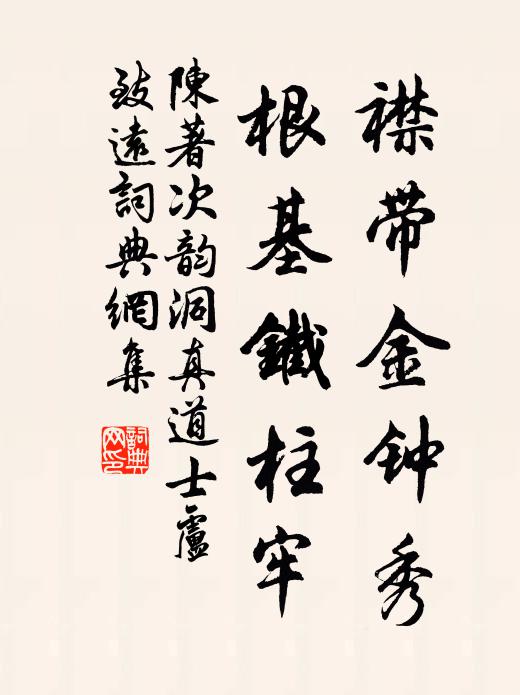 襟带金钟秀
根基鐵柱牢
陳著次韵洞真道士盧
致遠詞典網集
詞典网印